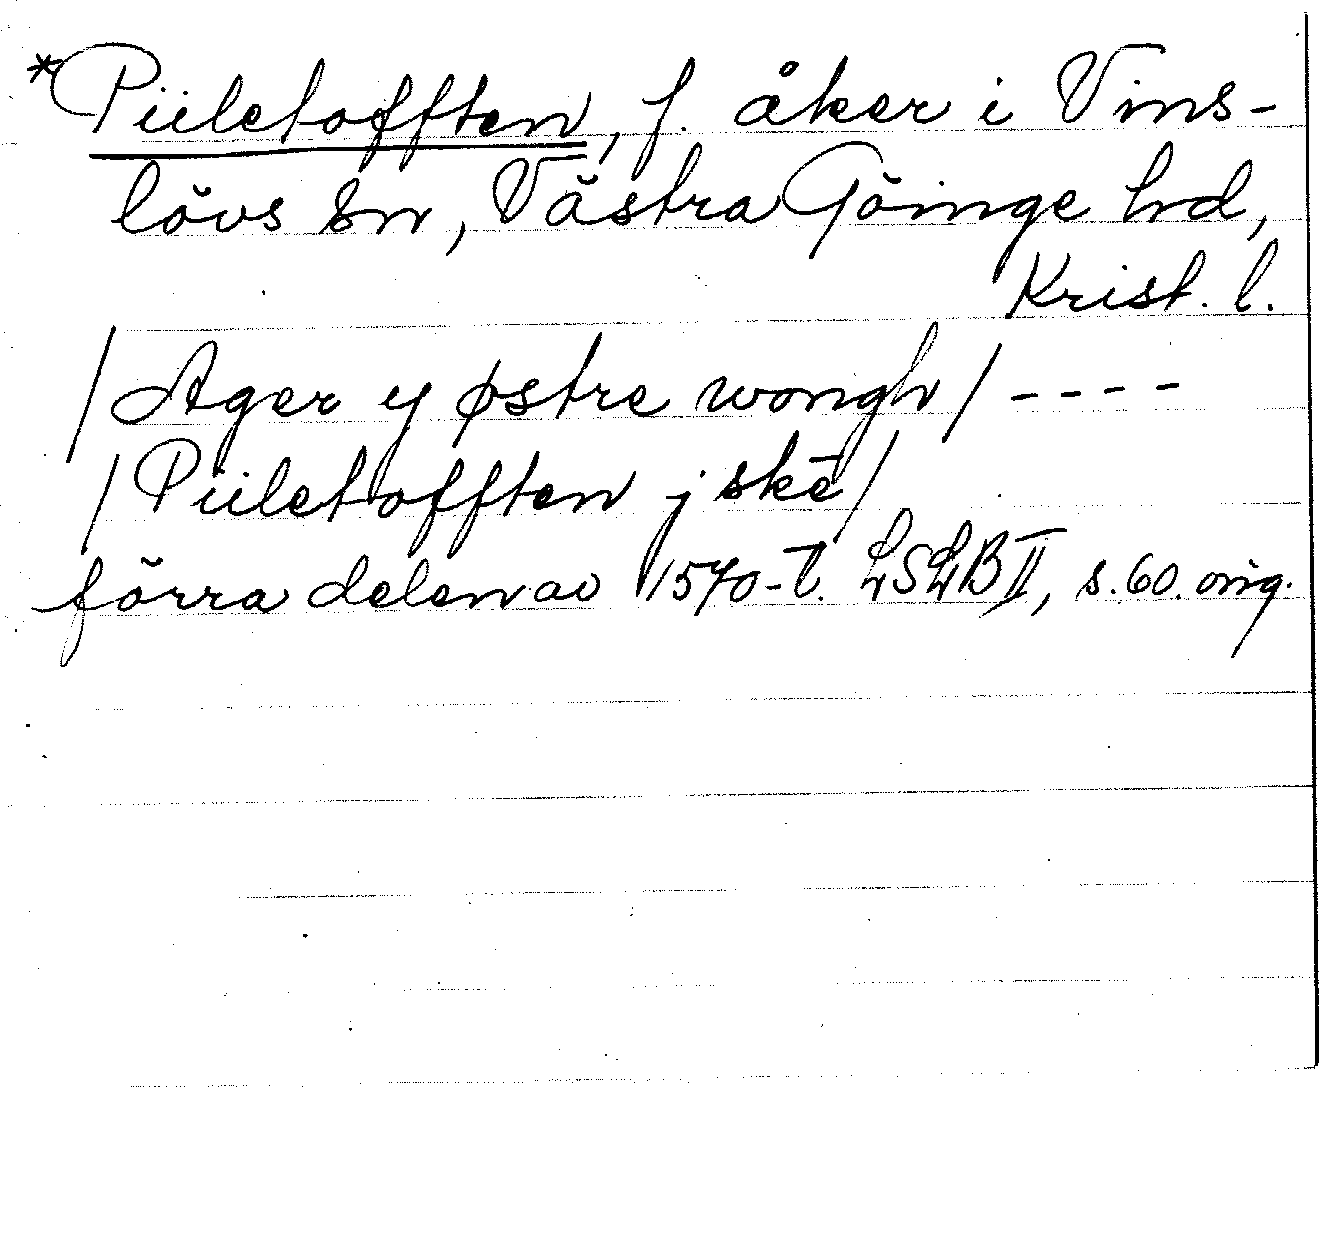 *Piiletofften, f. åker i Vins-
lövs sn, Västra Göinge hd,
Krist. l.
/Ager y østre wongh/ ----
/Piiletofften j skē/
förra delen av 1570-t. LSLB II, s. 60. orig.